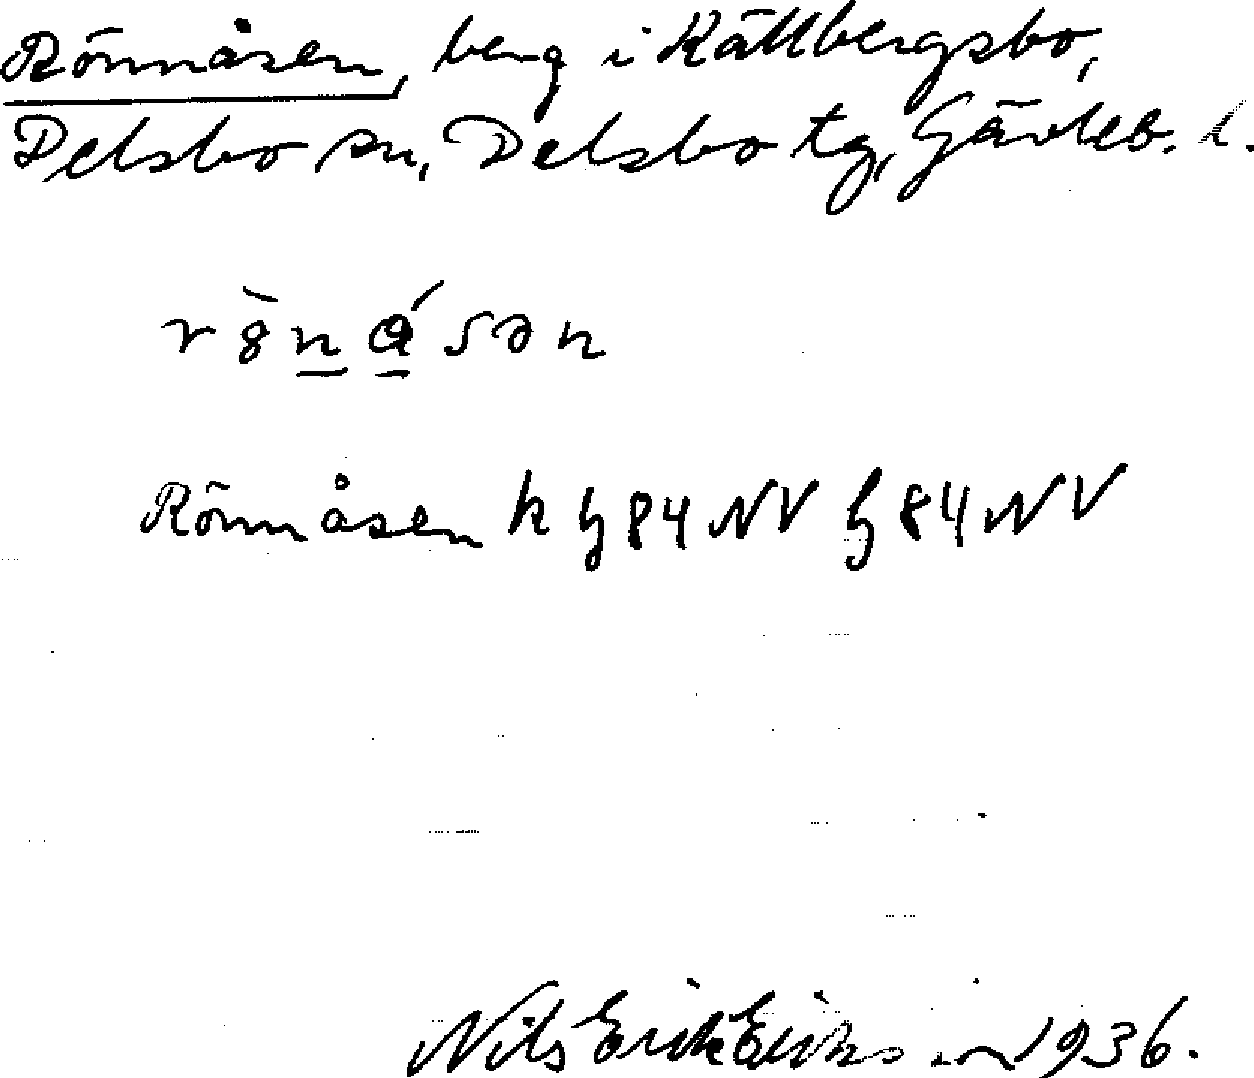 Rönnåsen, berg i Källbergsbo,
Delsbo sn, Delsbo tg, Gävleb. l.
rö̀nǻsən
Rönnåsen k h 84 NV h 84 NV
Nils Erik Eriksson 1936.